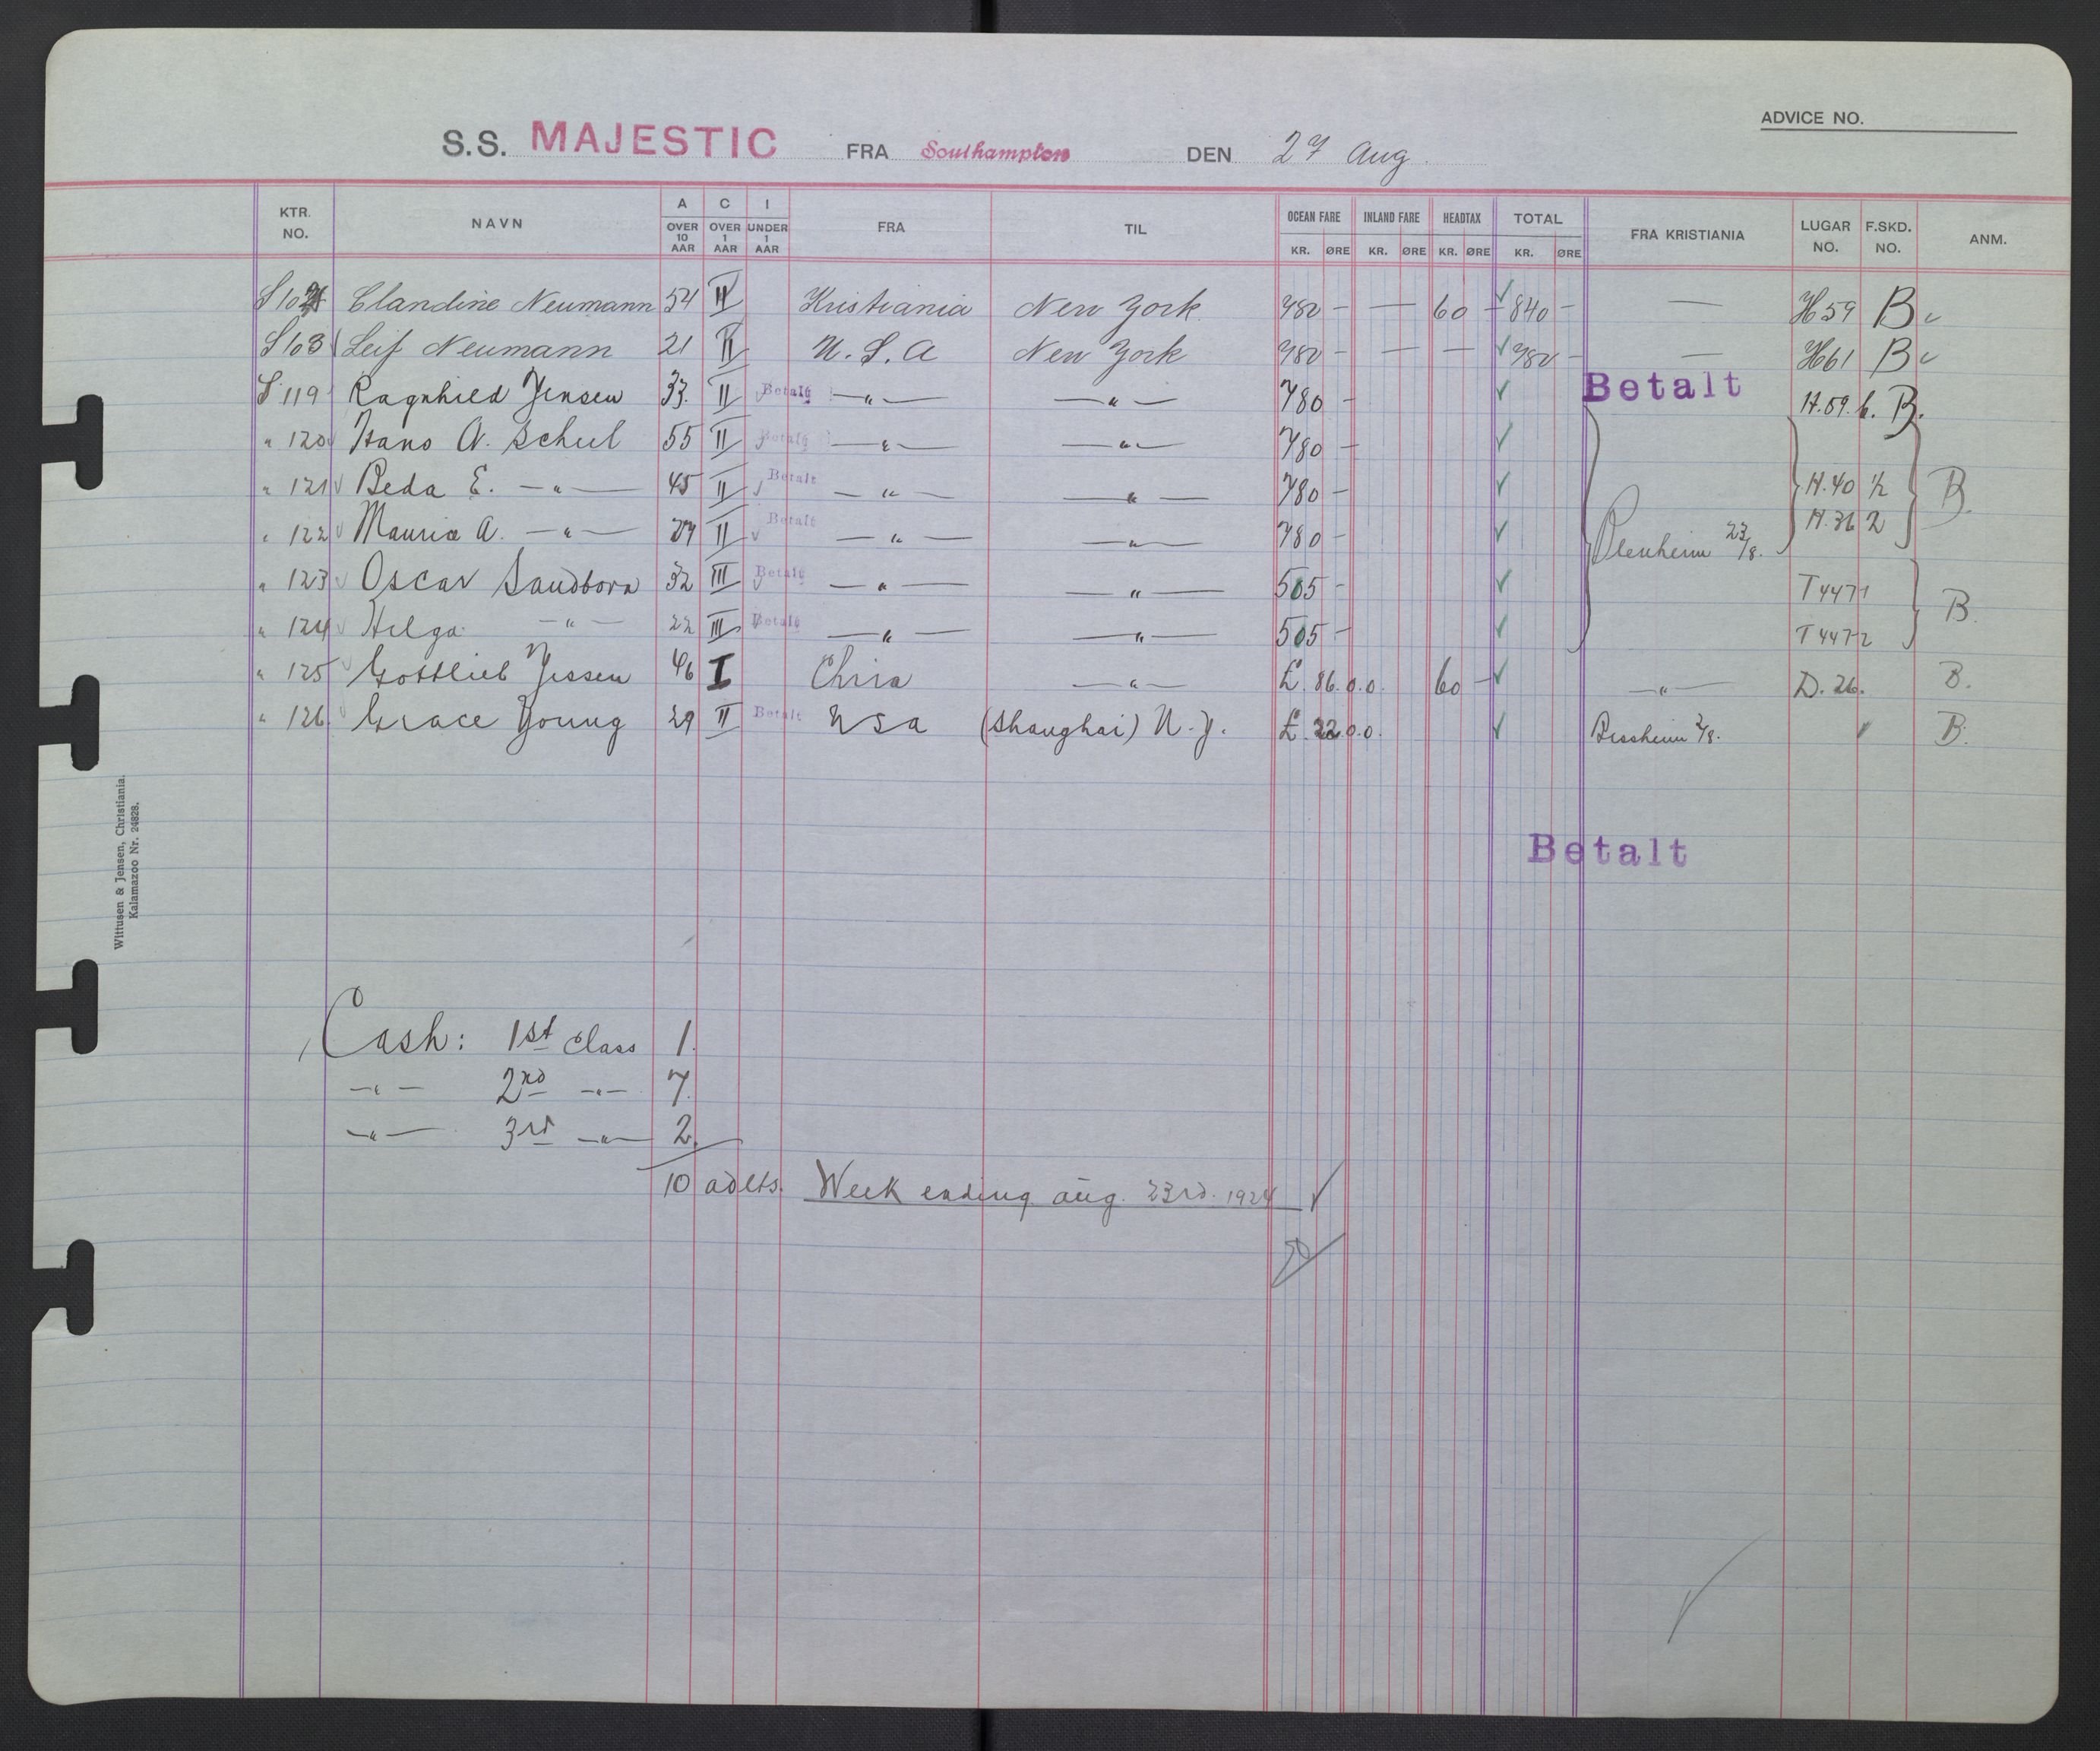 ADVICE NO.
S.S. MAJESTIC FRA Southampton DEN 27 Aug.
KTR. NO. NAVN A OVER 10 AAR C OVER 1 AAR I UNDER 1 AAR FRA TIL OCEAN FARE KR. ØRE INLAND FARE KR. ØRE HEADTAX KR. ØRE TOTAL KR. ØRE FRA KRISTIANIA LUGAR NO. F.SKD. NO. ANM.
Clandine Neumann 54 II Kristiania New York 780 - — 60 - 840 - — H59 B
S103 Leif Neumann 21 II U.S.A New York 780 - — — 780 - — H61 B
S119 Ragnhild Jensen 33. II Betalt —"— —"— 780 - Betalt H.59. B.
" 120 Hans A. Scheel 55 II Betalt —"— —"— 780 -
" 121 Beda E. —"— 45 II Betalt —"— —"— 780 - H.40 1/2 B.
" 122 A. —"— II Betalt —"— —"— 780 - 23/8. H.36 2
" 123 Oscar Sandborn 32 III Betalt —"— —"— 505 - T4471 B.
" 124 Helga —"— 22 III Betalt —"— —"— 505 - T4472
" 125 Gottlieb Jessen 46 I China —"— £ 86.0.0. 60 - —"— D.26. B.
" 126 Grace Young 29 II Betalt USA (Shanghai) N.Y. £ 32.0.0. B.
Betalt
Wittusen & Jensen, Christiania.
Kalamazoo Nr. 24828.
Cash: 1st class 1.
—"— 2nd —"— 7.
—"— 3rd —"— 2.
10 adlts. Week ending Aug. 23rd. 1924